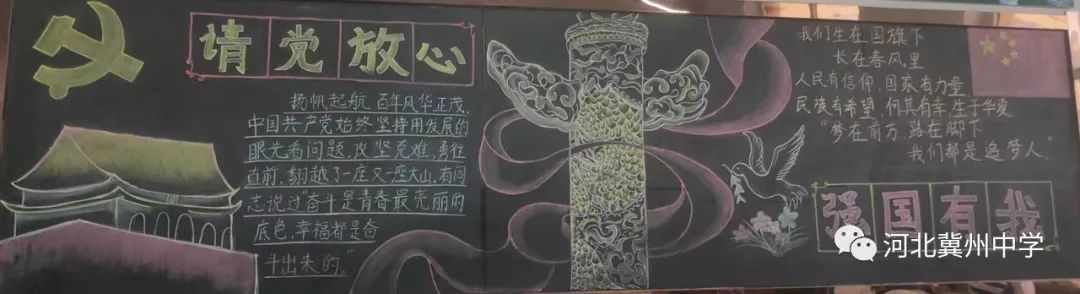 请党放心
扬帆起航,百年风华正茂,
中国共产党始终坚持用发展的
眼光看问题,攻坚克难,勇往
直前,翻越了一座又一座大山,有同
志说过“奋斗是青春最亮丽的
底色,幸福都是奋
斗出来的。”
我们生在国旗下
长在春风里
人民有信仰,国家有力量
民族有希望,何其有幸,生于华夏
“梦在前方,路在脚下
我们都是追梦人”
强国有我
河北冀州中学